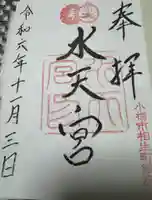 奉拝
水天宮
令和六年十一月三日
小樽市相生町